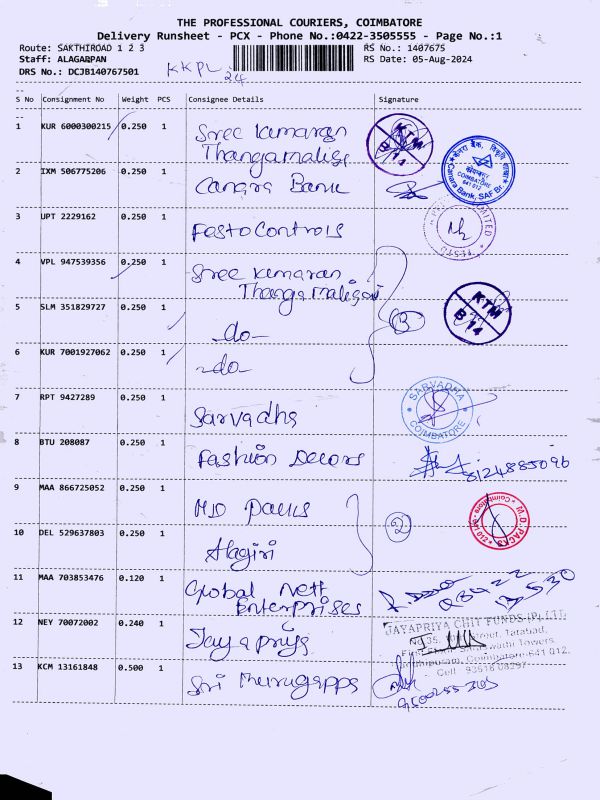 THE PROFESSIONAL COURIERS, COIMBATORE
Delivery Runsheet - PCX - Phone No.:0422-3505555 - Page No.:1
Route: SAKTHIROAD 1 2 3
RS No.: 1407675
Staff: ALAGAPPAN
RS Date: 05-Aug-2024
DRS No.: DCJB140767501
KKPL
24
S No Consignment No Weight PCS Consignee Details Signature
1 KUR 6000300215 0.250 1 Sree Kumaran
Thangamaligai
KTM
B 14
2 IXM 506775206 0.250 1 Canara Bank
COIMBATORE
641 012
Canara Bank, SAF Br.
3 UPT 2229162 0.250 1 Festo Controls
4 VPL 947539356 0.250 1 Sree Kumaran
Thangamaligai
5 SLM 351829727 0.250 1 -do-
3
KTM
B 14
6 KUR 7001927062 0.250 1 -do-
7 RPT 9427289 0.250 1 Sarvadha
SARVADHA
COIMBATORE
8 BTU 208087 0.250 1 Fashion Decors
8124885096
9 MAA 866725052 0.250 1 MD Packs
2
M.D. PACKS
Coimbatore - 641 012
10 DEL 529637803 0.250 1 Alagiri
11 MAA 703853476 0.120 1 Global Nett
Enterprises
12 NEY 70072002 0.240 1 Jayapriya
JAYAPRIYA CHIT FUNDS (P) LTD
No.35, Street, Tatabad,
Towers,
Coimbatore-641 012.
Cell : 93616 08297
13 KCM 13161848 0.500 1 Sri Murugappa